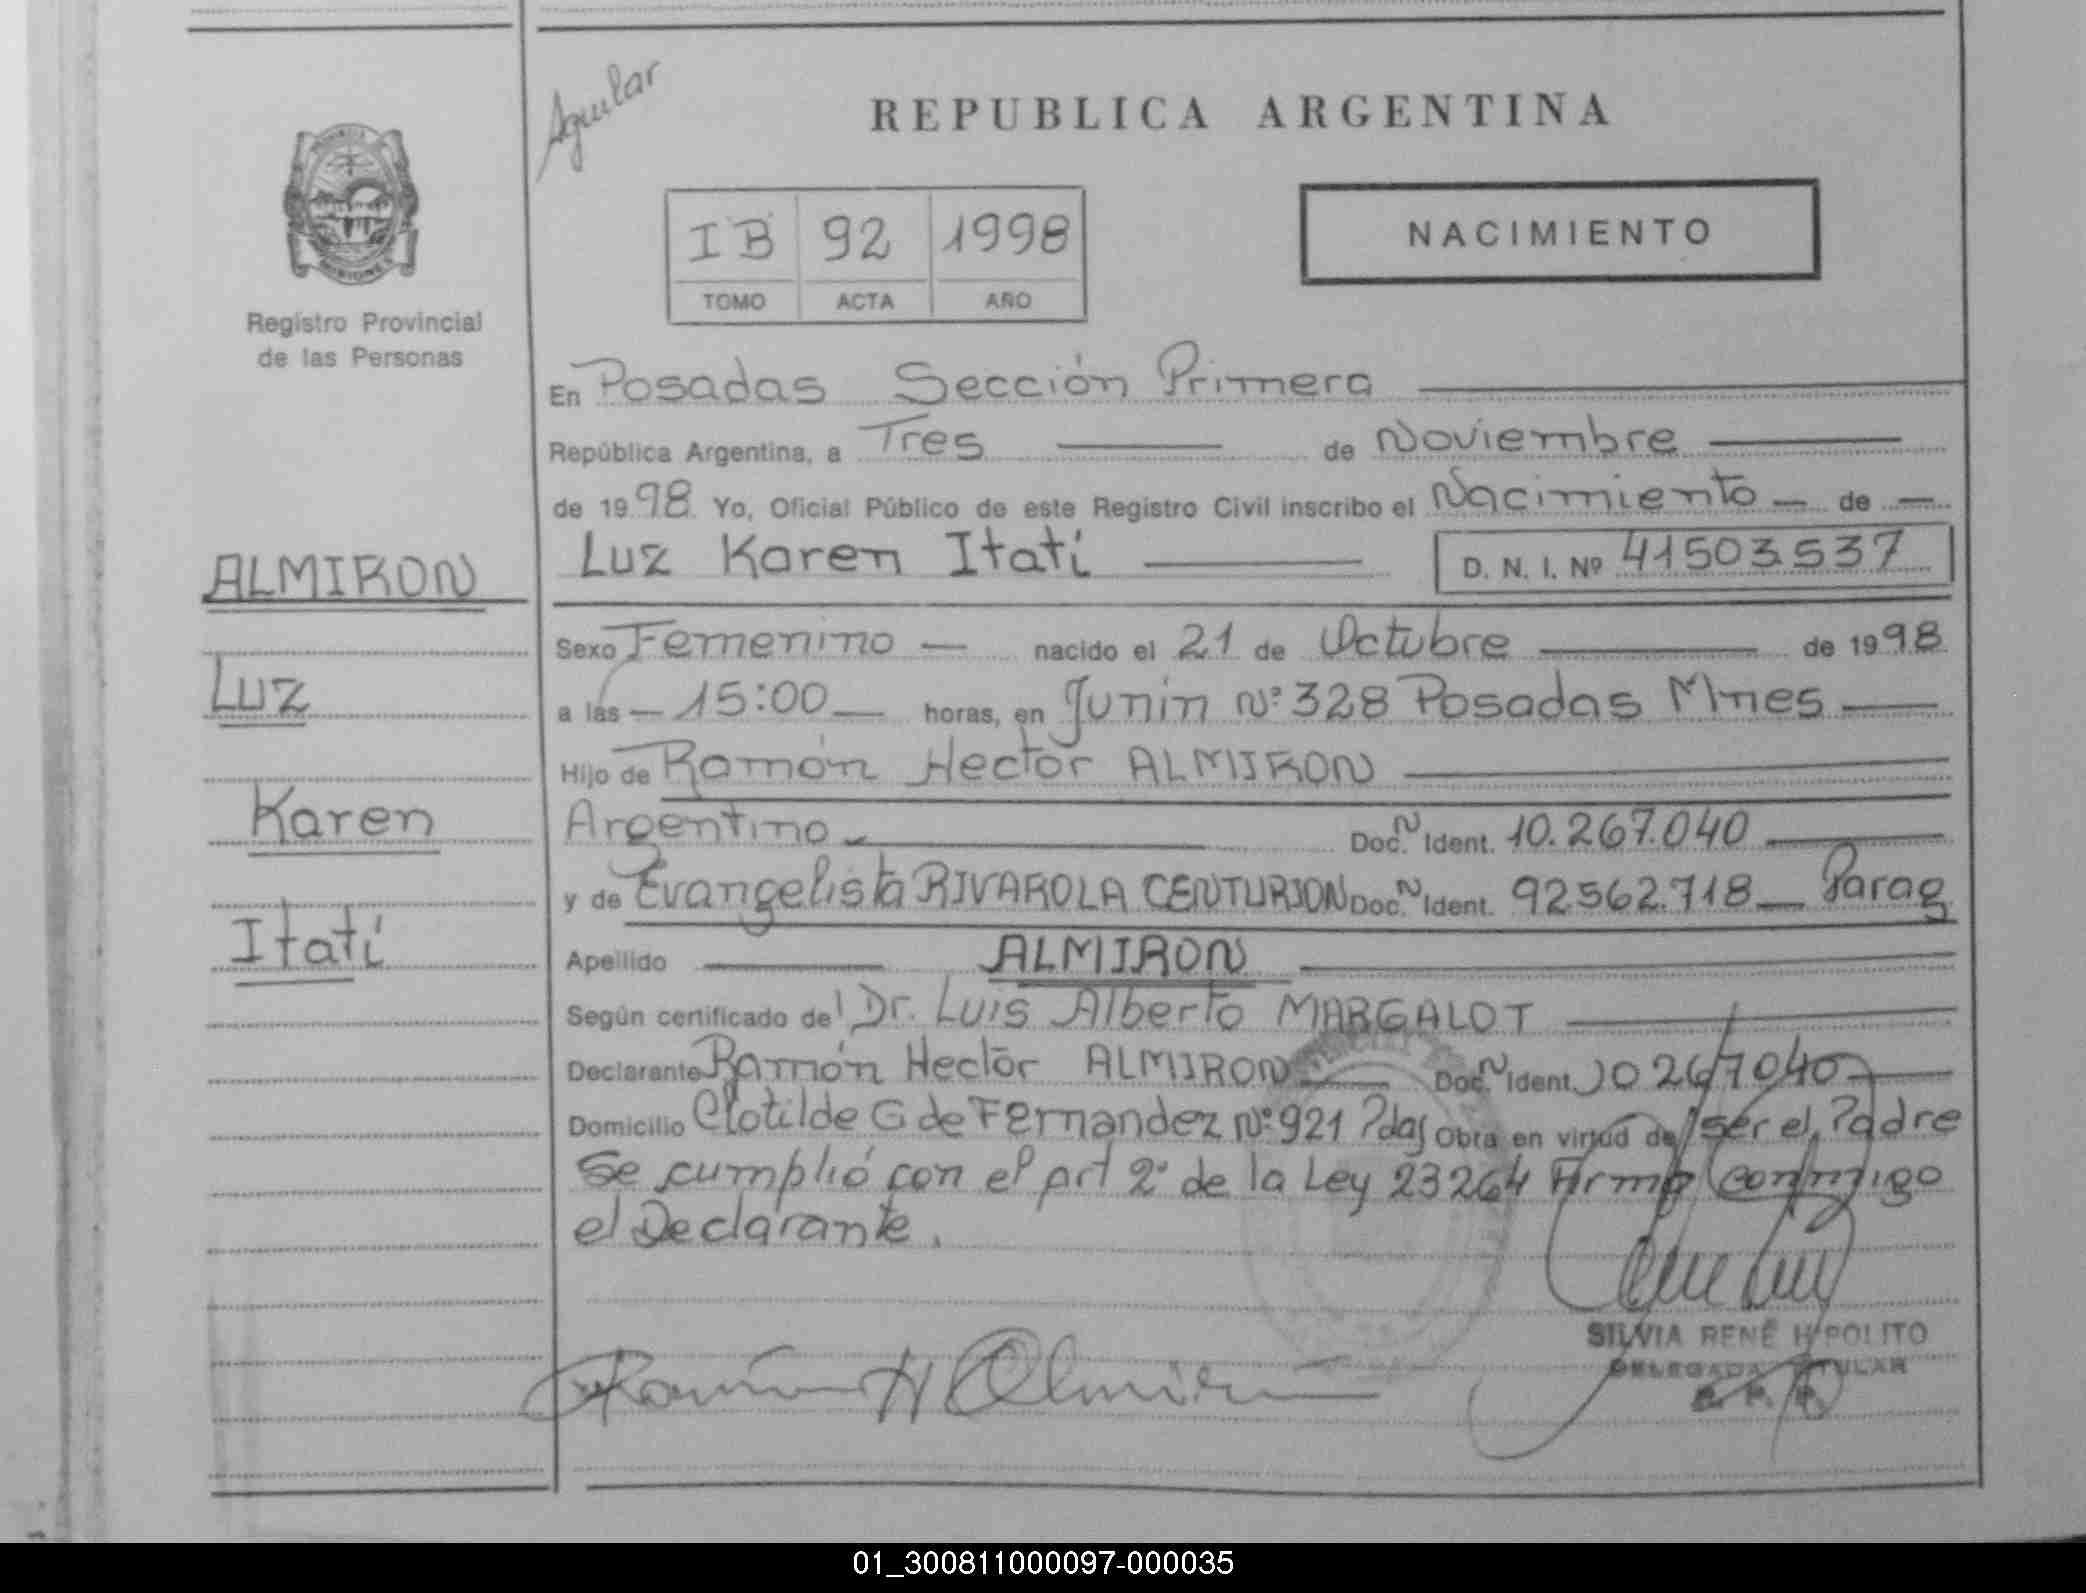 Aguilar
REPUBLICA ARGENTINA
IB 92 1998
TOMO ACTA AÑO
NACIMIENTO
MISIONES
Registro Provincial
de las Personas
ALMIRON
Luz
Karen
Itatí
En Posadas Sección Primera
República Argentina, a Tres de Noviembre
de 1998 Yo, Oficial Público de este Registro Civil inscribo el Nacimiento — de —
Luz Karen Itatí D. N. I. Nº 41503.537
Sexo Femenino — nacido el 21 de Octubre de 1998
a las — 15:00 — horas, en Junín Nº 328 Posadas Mnes
Hijo de Ramón Hector ALMIRON
Argentino Doc. N Ident. 10.267.040
y de Evangelista RIVAROLA CENTURION Doc. N Ident. 92562.718 — Parag
Apellido ALMIRON
Según certificado del Dr. Luis Alberto MARGALOT
Declarante Ramón Hector ALMIRON Doc. N Ident. 10267040
Domicilio Clotilde G de Fernandez Nº 921 Pdas Obra en virtud de ser el Padre
Se cumplió con el art 2º de la Ley 23264 Firma conmigo
el Declarante.
Ramón H Almirón
SILVIA RENÉ HIPOLITO
DELEGADA TITULAR
01_300811000097-000035